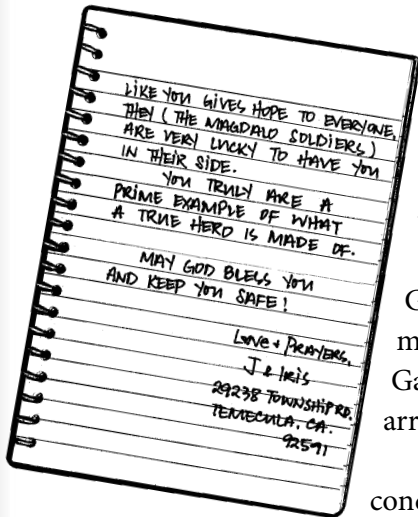 LIKE YOU GIVES HOPE TO EVERYONE.
THEY (THE MAGDALO SOLDIERS)
ARE VERY LUCKY TO HAVE YOU
IN THEIR SIDE.
YOU TRULY ARE A
PRIME EXAMPLE OF WHAT
A TRUE HERO IS MADE OF.
MAY GOD BLESS YOU
AND KEEP YOU SAFE!
Love & PRAYERS,
J & IRIS
29238 TOWNSHIP RD.
TEMECULA, CA.
92591
m
Ga
arr
conc